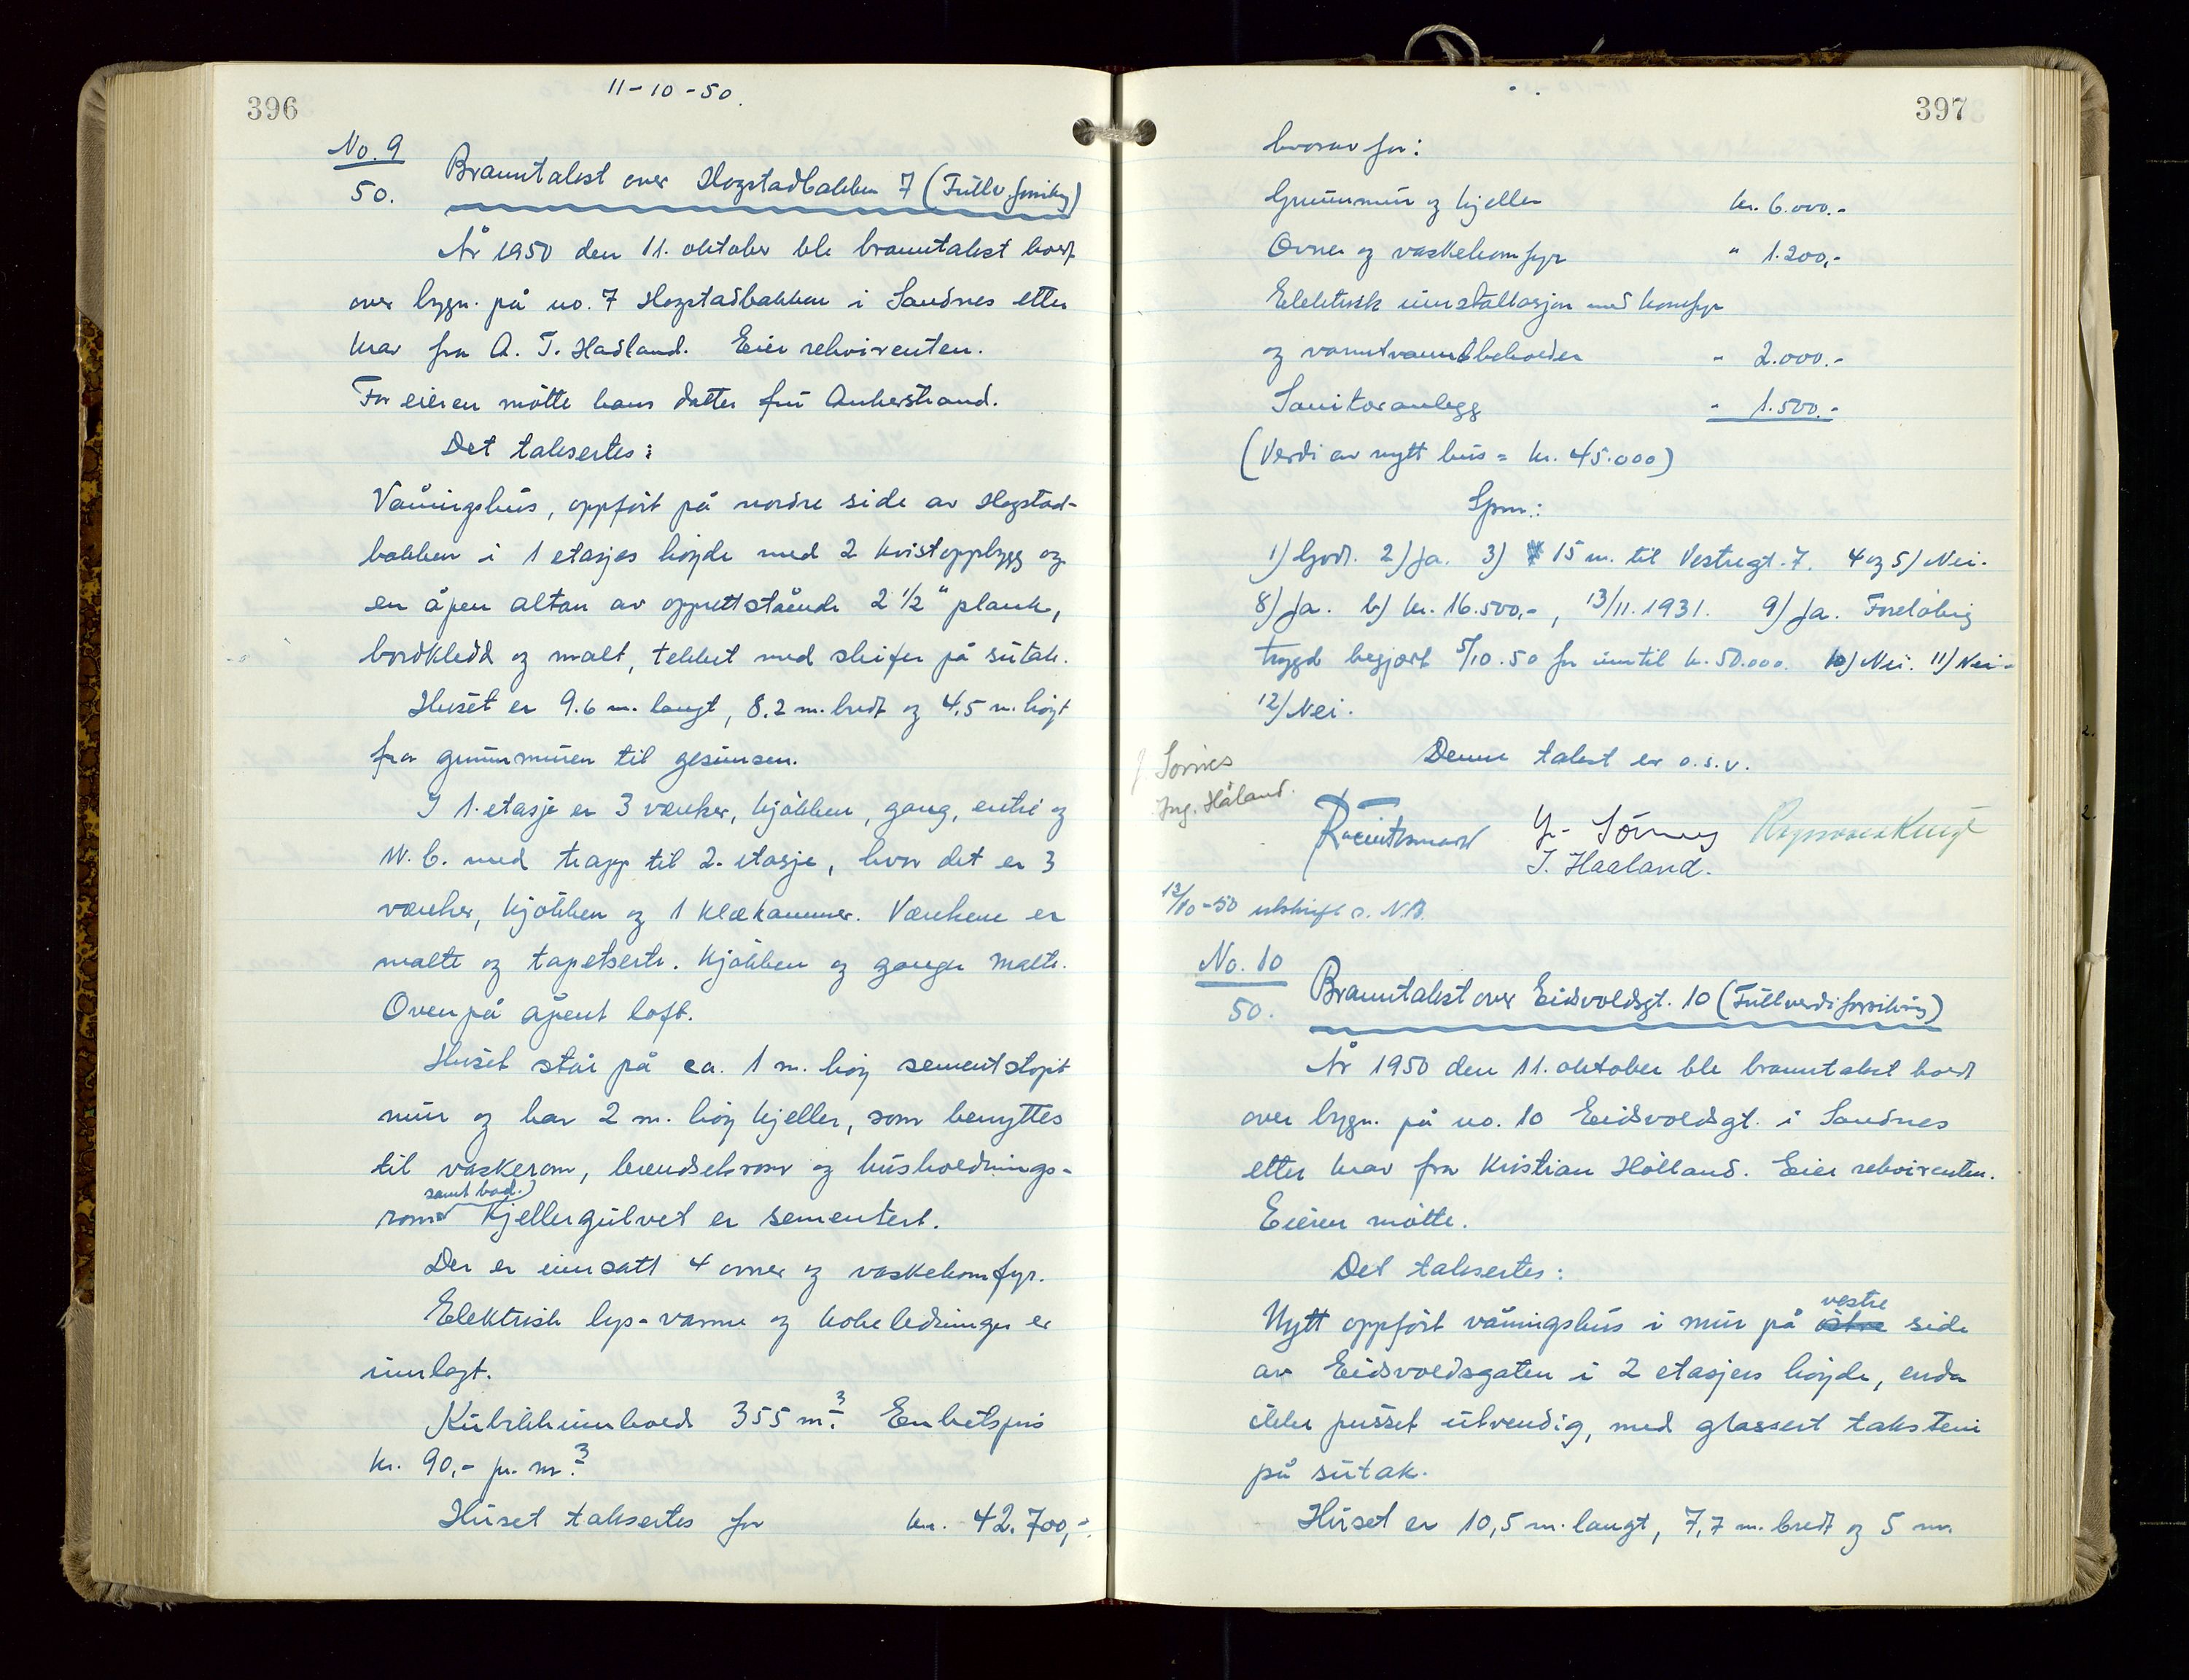 396
11-10-50.
No. 9
50.
Branntakst over Hogstadbakken 7 (Fullv. forsikr.)
År 1950 den 11. oktober ble branntakst hold
over bygn. på no. 7 Hogstadbakken i Sandnes etter
krav fra A. T. Hadland. Eier rekvirenten.
For eieren møtte hans datter fru Ankerstrand.
Det taksertes:
Våningshus, oppført på nordre side av Hogstad-
bakken i 1 etasjes høyde med 2 kvistoppbygg og
en åpen altan av opprettstående 2 1/2" plank,
bordkledd og malt, tekket med skifer på sutak.
Huset er 9.6 m. langt, 8.2 m. bredt og 4,5 m. høyt
fra grunnmuren til gesimsen.
I 1. etasje er 3 værelser, kjøkken, gang, entré og
W.C. med trapp til 2. etasje, hvor det er 3
værelser, kjøkken og 1 klekammer. Værelsene er
malte og tapetserte. Kjøkken og ganger malte.
Ovenpå åpent loft.
Huset står på ca. 1 m. høy sementstøpt
mur og har 2 m. høy kjeller, som benyttes
til vaskerom, brendselsrom og husholdnings-
samt bad.
rom Kjellergulvet er sementert.
Der er innsatt 4 ovner og vaskekomfyr.
Elektrisk lys- varme og kokeledninger er
innlagt.
Kubikkinnhold 355 m³. Enhetspris
kr. 90,- pr. m³.
Huset taksertes for kr. 42.700,-.
397
hvorav for:
Grunnmur og kjeller kr. 6.000.-
Ovner og vaskekomfyr " 1.200,-
Elektrisk innstallasjon med komfyr
og varmtvannsbeholder " 2.000.-
Sanitæranlegg " 1.500.-
(Verdi av nytt hus = kr. 45.000)
Spm.:
1) Godt. 2) Ja. 3) 15 m. til Vestregt. 7. 4 og 5) Nei.
8) Ja. b) kr. 16.500,-, 13/11. 1931. 9) Ja. Foreløbig
trygd begjært 5/10.50 for inntil kr. 50.000. 10) Nei. 11) Nei.
12) Nei.
Denne takst er o.s.v.
Sørnes
Ing. Håland.
G. Sørnes
T. Haaland.
12/10-50 utskrift s. N.B.
No. 10
50.
Branntakst over Eidsvoldsgt. 10 (Fullverdiforsikring)
År 1950 den 11. oktober ble branntakst hold
over bygn. på no. 10 Eidsvoldsgt. i Sandnes
etter krav fra Kristian Hølland. Eier rekvirenten.
Eieren møtte.
Det taksertes:
vestre
Nytt oppført våningshus i mur på østre side
av Eidsvoldsgaten i 2 etasjers høyde, enda
ikke pusset utvendig, med glassert taksten
på sutak.
Huset er 10,5 m. langt, 7,7 m. bredt og 5 m.